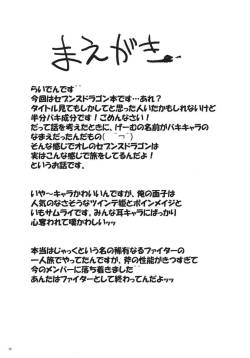 まえがき
らいでんです
今回はセブンスドラゴン本です…あれ？
タイトル見てもしかしてと思った人いたかもしれないけど
半分バキ成分です！ごめんなさい！
だって話を考えたときに、げーむの名前がバキキャラの
なまえだったんだもの(￣¬￣)
そんな感じでオレのセブンスドラゴンは
実はこんな感じで旅をしてるんだよ！
というお話です。
いや～キャラかわいいんですが、俺の面子は
人気のなさそうなツインテ姫とボインメイジと
いもサムライです、みんな耳キャラにばっかり
心奪われて嘆かわしいッ
本当はじゃっくという名の稀有なるファイターの
一人旅でやってたんですが、斧の性能がきつすぎて
今のメンバーに落ち着きました
あんたはファイターとして終わってんだよッッ